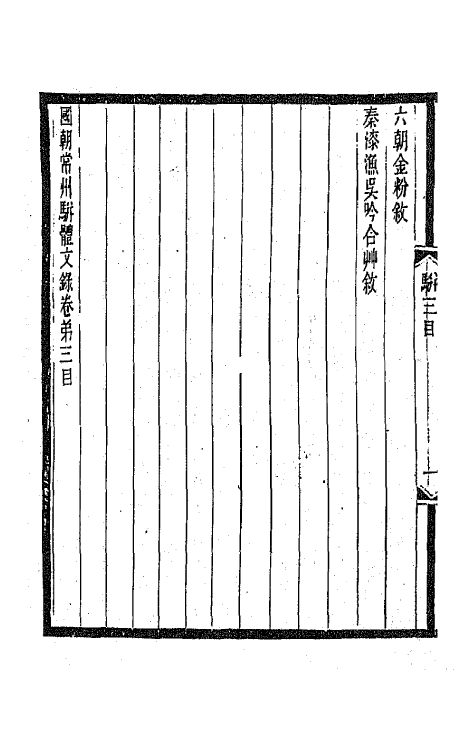 六朝金粉敘
秦漆漁吳吟合艸敘
國朝常州駢體文錄卷弟三目
駢三目
一